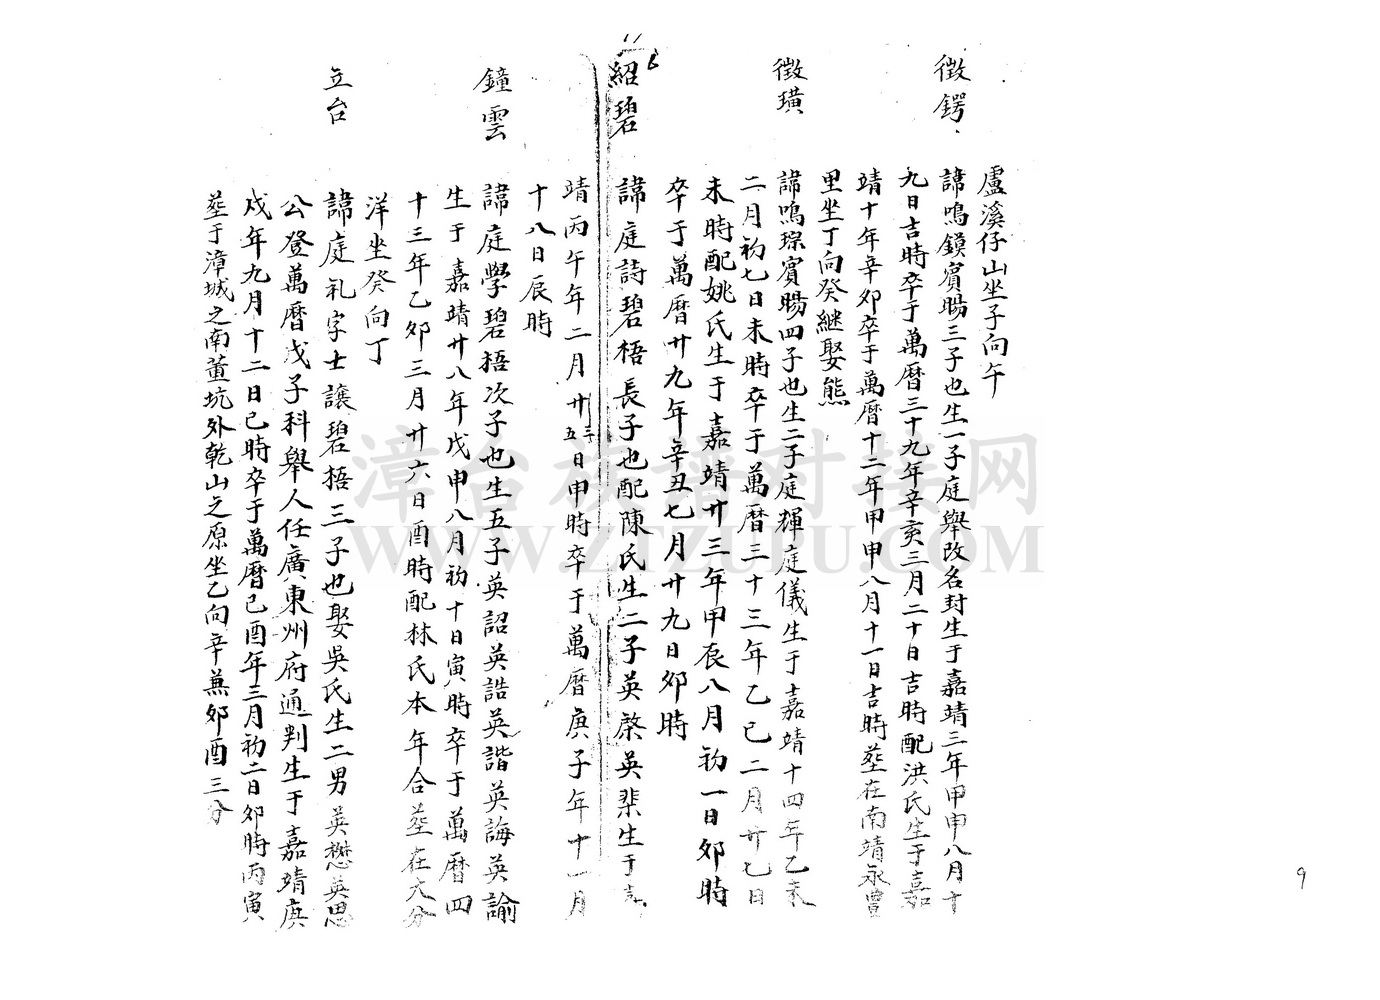 盧溪仔山坐子向午
徵鍔
諱鳴鏌賓暘三子也生一子庭舉改名封生于嘉靖三年甲申八月十
九日吉時卒于萬曆三十九年辛亥三月二十日吉時配洪氏生于嘉
靖十年辛卯卒于萬曆十二年甲申八月十一日吉時塟在南靖永豐
里坐丁向癸継娶熊
徵璜
諱鳴琮賓暘四子也生二子庭輝庭儀生于嘉靖十四年乙未
二月初七日未時卒于萬曆三十三年乙巳二月廿七日
未時配姚氏生于嘉靖廿三年甲辰八月初一日卯時
卒于萬曆廿九年辛丑七月廿九日卯時
11
6
紹碧
諱庭詩碧梧長子也配陳氏生二子英棨英棐生于嘉
靖丙午年二月廿三五日申時卒于萬曆庚子年十一月
十八日辰時
鐘雲
諱庭學碧捂次子也生五子英詔英誥英諧英誨英諭
生于嘉靖廿八年戊申八月初十日寅時卒于萬曆四
十三年乙卯三月廿六日酉時配林氏本年合塟在大分
洋坐癸向丁
立台
諱庭礼字士讓碧捂三子也娶吳氏生二男英懋英思
公登萬曆戊子科舉人任廣東州府通判生于嘉靖庚
戌年九月十二日巳時卒于萬曆己酉年三月初二日卯時丙寅
塟于漳城之南董坑外乾山之原坐乙向辛兼卯酉三分
9
漳台族谱对接网
WWW.ZTZUPU.COM